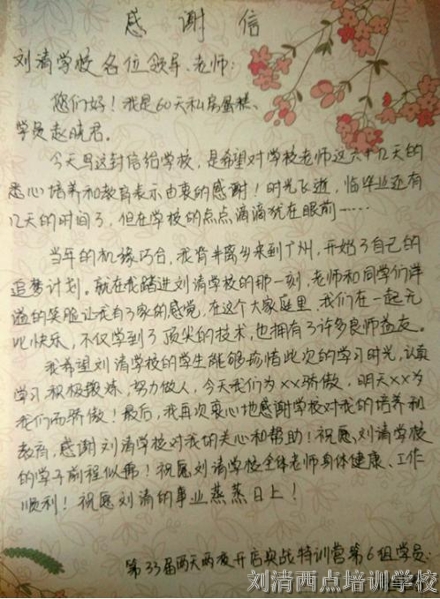 感谢信
刘清学校各位领导、老师:
您们好！我是60天私房蛋糕、
学员赵晓君。
今天写这封信给学校，是希望对学校老师这六十几天的
悉心培养和教育表示由衷的感谢！时光飞逝，临毕业还有
几天的时间了，但在学校的点点滴滴犹在眼前……
当年的机缘巧合，我背井离乡来到广州，开始了自己的
追梦计划。就在我踏进刘清学校的那一刻，老师和同学们洋
溢的笑脸让我有了家的感觉，在这个大家庭里，我们在一起无
比快乐，不仅学到了顶尖的技术，也拥有了许多良师益友。
我希望刘清学校的学生能够珍惜此次的学习时光，认真
学习积极锻炼，努力做人，今天我们为××骄傲，明天××为
我们而骄傲！最后，我再次衷心地感谢学校对我的培养和
教育，感谢刘清学校对我的关心和帮助！祝愿刘清学校
的学子前程似锦！祝愿刘清学校全体老师身体健康、工作
顺利！祝愿刘清的事业蒸蒸日上！
第33届两天两夜开店实战特训营第6组学员:
刘清西点培训学校